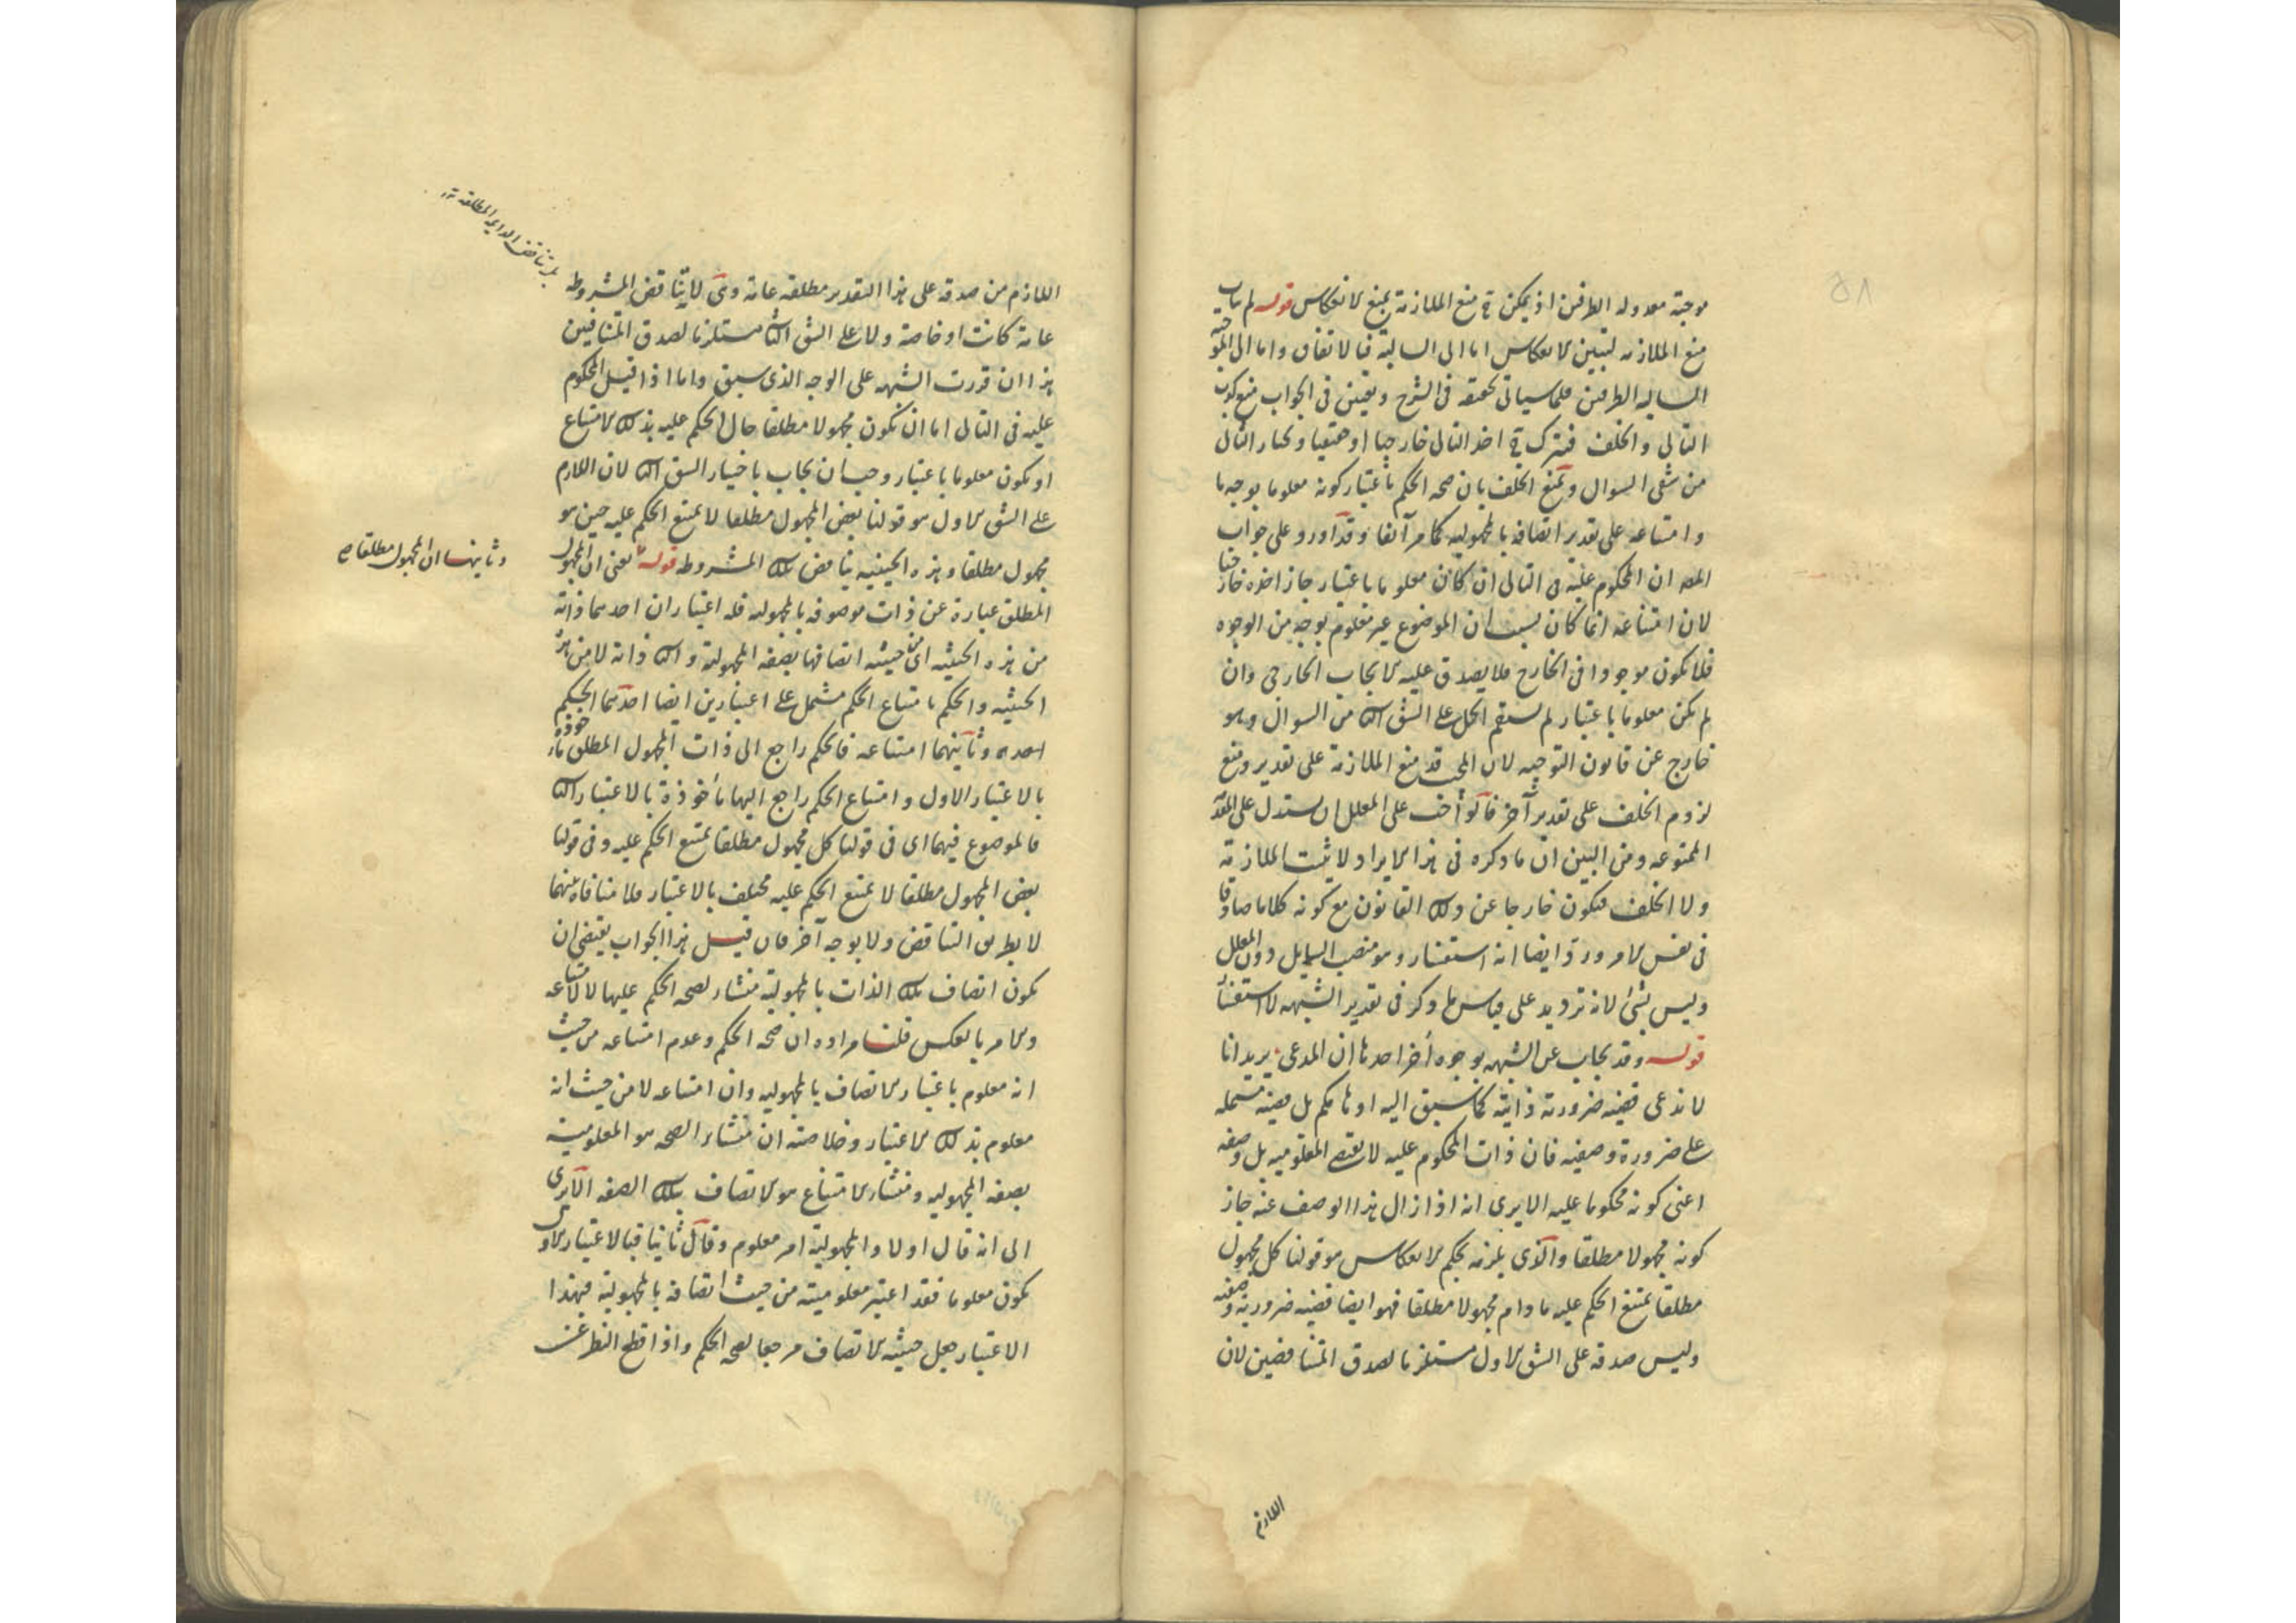 ٥٨
موجبة معدولة الطرفين اذ يمكن ح منع الملازمة بمنع الانعكاس قوله لم يتأت
منع الملازمة لتبين الانعكاس اما الى السالبة فبالاتفاق واما الى الموجبة
السالبة الطرفين فلما سياتى تحققه فى الشرح ويتعين فى الجواب منع كذب
التالى والخلف فيترك ح اخذ التالى خارجيا او حقيقيا ونختار الثانى
من شقى السوال ونمنع الخلف بان صحة الحكم باعتبار كونه معلوما بوجه ما
وامتناعه على تقدير اتصافه بالمجهولية كما مر آنفا وقد اورد على جواب
المص ان المحكوم عليه فى التالى ان كان معلوما باعتبار جاز اخذه خارجيا
لان امتناعه انما كان بسبب ان الموضوع غير معلوم بوجه من الوجوه
فلا يكون موجودا فى الخارج فلا يصدق عليه الايجاب الخارجى وان
لم يكن معلوما باعتبار لم يستقم الحل على الشق الثانى من السوال وهو
خارج عن قانون التوجيه لان المجيب قد منع الملازمة على تقدير ومنع
لزوم الخلف على تقدير آخر فالواجب على المعلل ان يستدل على المقدمة
الممنوعة ومن البين ان ما ذكره فى هذا الايراد لا يثبت الملازمة
ولا الخلف فيكون خارجا عن ذلك القانون مع كونه كلاما صادقا
فى نفس الامر ورد ايضا انه استفسار وهو منصب السايل دون المعلل
وليس بشئ لانه ترديد على قياس ما ذكر فى تقدير الشبهة لا استفسار
قوله وقد يجاب عن الشبهة بوجوه أخر احدها ان المدعى يريد انا
لا ندعى قضية ضرورية ذاتية كما سبق اليه اوهامكم بل قضية مشتملة
على ضرورة وصفية فان ذات المحكوم عليه لا يقتضى المعلومية بل وصفه
اعنى كونه محكوما عليه الا يرى انه اذا زال هذا الوصف عنه جاز
كونه مجهولا مطلقا والذى يلزمه بحكم الانعكاس هو قولنا كل مجهول
مطلقا يمتنع الحكم عليه ما دام مجهولا مطلقا فهو ايضا قضية ضرورية وصفية
وليس صدقه على الشق الاول مستلزما لصدق المتناقضين لان
اللازم
اللازم من صدقه على هذا التقدير مطلقة عامة وهى لا يناقض المشروطة
بل تناقض الدايمة المطلقة
عامة كانت او خاصة ولا على الشق الثانى مستلزما لصدق المتنافيين
هذا ان قررت الشبهة على الوجه الذى سبق واما اذا قيل المحكوم
عليه فى التالى اما ان يكون مجهولا مطلقا حال الحكم عليه بذلك الامتناع
او يكون معلوما باعتبار وجب ان يجاب باختيار الشق الثانى لان اللازم
على الشق الاول هو قولنا بعض المجهول مطلقا لا يمتنع الحكم عليه حين هو
مجهول مطلقا وهذه الحينية يناقض تلك المشروطة قوله يعنى ان المجهول
وثانيها ان المجهول مطلقا
المطلق عبارة عن ذات موصوفة بالمجهولية فله اعتباران احدهما ذاته
من هذه الحيثية اى من حيثية اتصافها بصفة المجهولية والثانى ذاته لا من هذه
الحيثية والحكم بامتناع الحكم مشتمل على اعتبارين ايضا احدهما الحكم
وثانيهما امتناعه فالحكم راجع الى ذات المجهول المطلق مأخوذة
بالاعتبار الاول وامتناع الحكم راجع اليها مأخوذة بالاعتبار الثانى
فالموضوع فيهما اى فى قولنا كل مجهول مطلقا يمتنع الحكم عليه وفى قولنا
بعض المجهول مطلقا لا يمتنع الحكم عليه مختلف بالاعتبار فلا منافاة بينهما
لا بطريق التناقض ولا بوجه آخر فان قيل هذا الجواب يقتضى ان
يكون اتصاف تلك الذات بالمجهولية منشاء لصحة الحكم عليها لا لامتناعه
والامر بالعكس قلنا مراده ان صحة الحكم وعدم امتناعه من حيث
انه معلوم باعتبار الاتصاف بالمجهولية وان امتناعه لا من حيث انه
معلوم بذلك الاعتبار وخلاصته ان منشاء الصحة هو المعلومية
بصفة المجهولية ومنشاء الامتناع هو الاتصاف بتلك الصفة الا يرى
الى انه قال اولا والمجهولية امر معلوم وقال ثانيا فبالاعتبار الاول
يكون معلوما فقد اعتبر معلوميته من حيث اتصافه بالمجهولية فبهذا
الاعتبار جعل حيثية الاتصاف مرجعا لصحة الحكم واذا قطع النظر عن